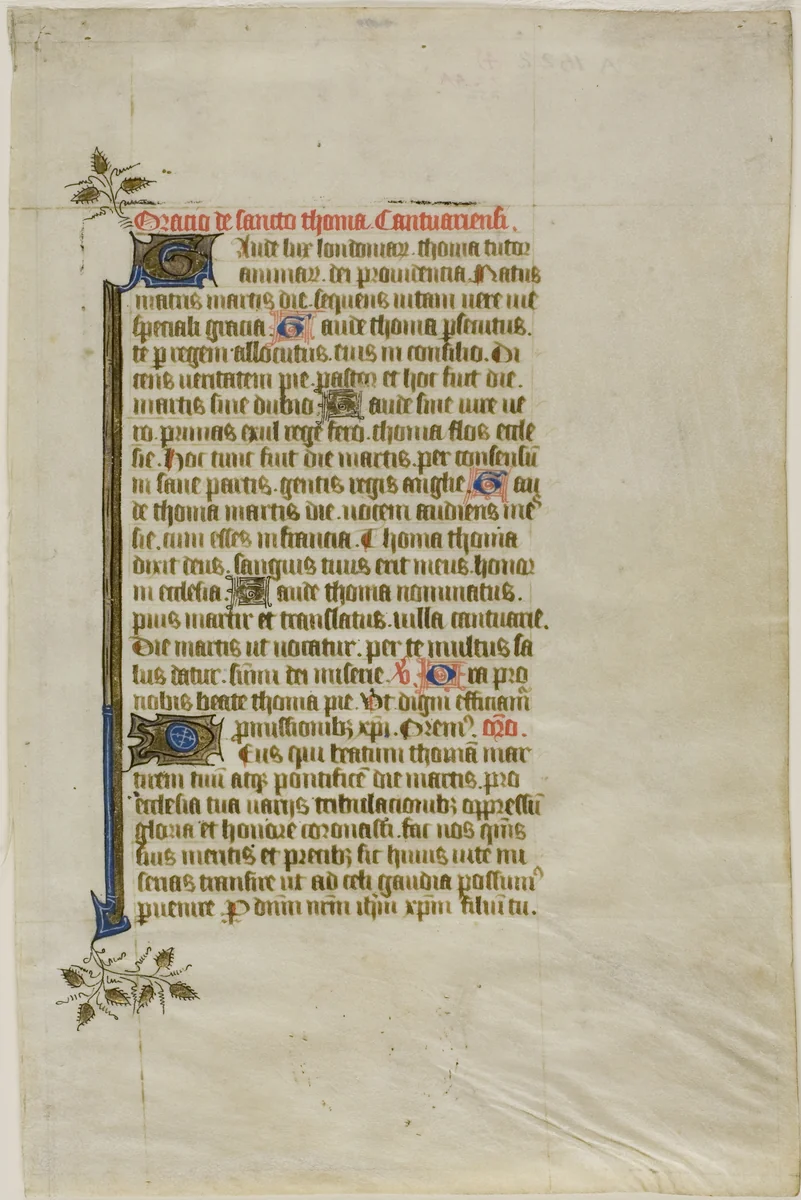 Oracio de sancto thoma Cantuariensi.
Gaude lux londoniaꝝ. thoma tutor
animaꝝ. dei prouidentia. Natus
matris martis die. sequens uitam uere uie
speciali gracia. Gaude thoma ꝑsecutus.
te ꝑ regem allocutus. eius in consilio. Di
cens ueritatem pie. pastor et hoc fuit die.
martis sine dubio. Gaude sine iure ue
ro. primas exul rege fero. thoma flos eccle
sie. Hoc tunc fuit die martis. per consensū
in sane partis. gentis regis anglie. Gau
de thoma martis die. uocem audiens mes
sie. cum esses in francia. Thoma thoma
dixit deus. sanguis tuus erit meus. honor
in ecclesia. Gaude thoma nominatus.
pius martir et translatus. uilla cantuarie.
Die martis ut uocatur. per te multus sa
lus datur. sūmi dei miserie. ꝟ. Ora pro
nobis beate thoma pie. Vt digni efficiam̄
ꝓmissionibꝫ xp̄i. Oremꝰ. or̄o.
Deus qui beatum thomā mar
tirem tuū atqꝫ pontificē die martis. pro
ecclesia tua uarijs tribulacionibꝫ oppressū
gloria et honore coronasti. fac nos qm̄s
eius meritis et precibꝫ sic huius uite mi
serias transire ut ad celi gaudia possumꝰ
ꝑuenire Ꝑ dnm̄ nr̄m ih̄m xp̄m filiū tu.